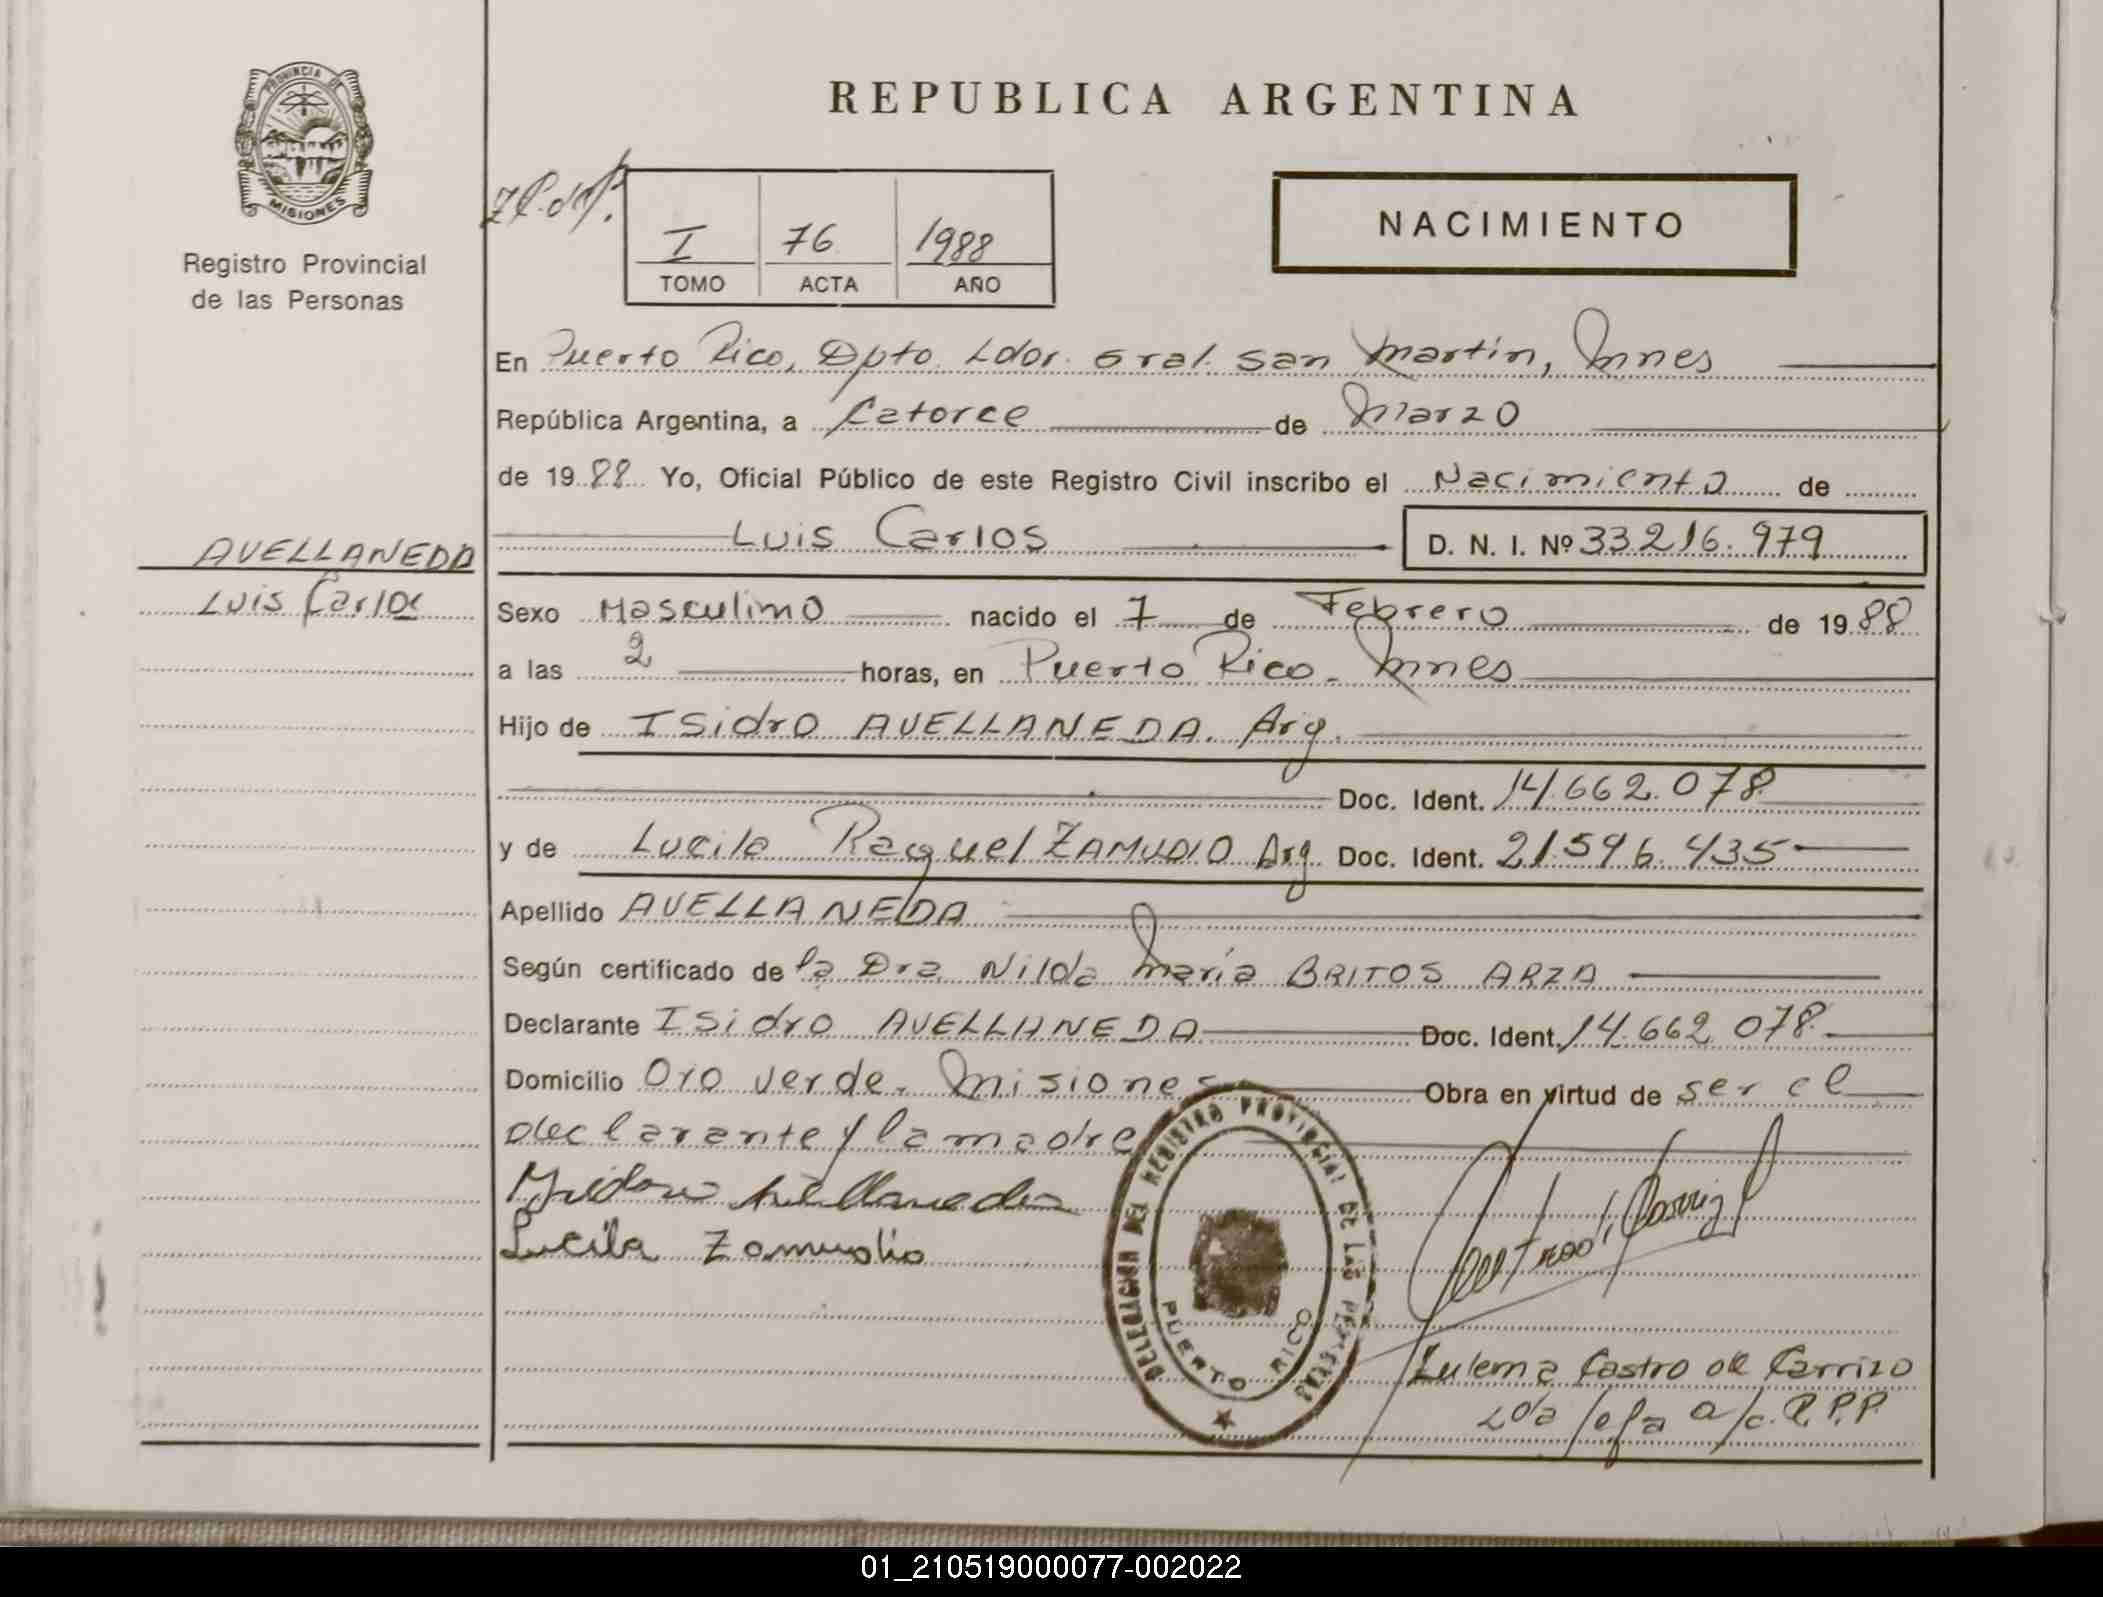 PROVINCIA DE
MISIONES
Registro Provincial
de las Personas
REPUBLICA ARGENTINA
I 76 1988
TOMO ACTA AÑO
NACIMIENTO
En Puerto Rico, Dpto. Ldor. Gral. San Martin, Mnes
República Argentina, a Catorce de Marzo
de 1988 Yo, Oficial Público de este Registro Civil inscribo el Nacimiento de
Luis Carlos D. N. I. Nº 33216.979
AVELLANEDA
Luis Carlos
Sexo Masculino nacido el 7 de Febrero de 1988
a las 2 horas, en Puerto Rico. Mnes
Hijo de Isidro AVELLANEDA. Arg.
Doc. Ident. 14.662.078
y de Lucila Raquel ZAMUDIO Arg. Doc. Ident. 21.596.435
Apellido AVELLANEDA
Según certificado de la Dra Nilda María BRITOS ARZA
Declarante Isidro AVELLANEDA Doc. Ident. 14.662.078
Domicilio Oro verde. Misiones Obra en virtud de ser el
declarante y la madre
Avellaneda
Lucila Zamudio
DELEGACION DEL REGISTRO PROVINCIAL DE LAS PERSONAS
PUERTO RICO
Zulema Castro de Carrizo
2da Jefa a/c. R.P.P.
01_210519000077-002022